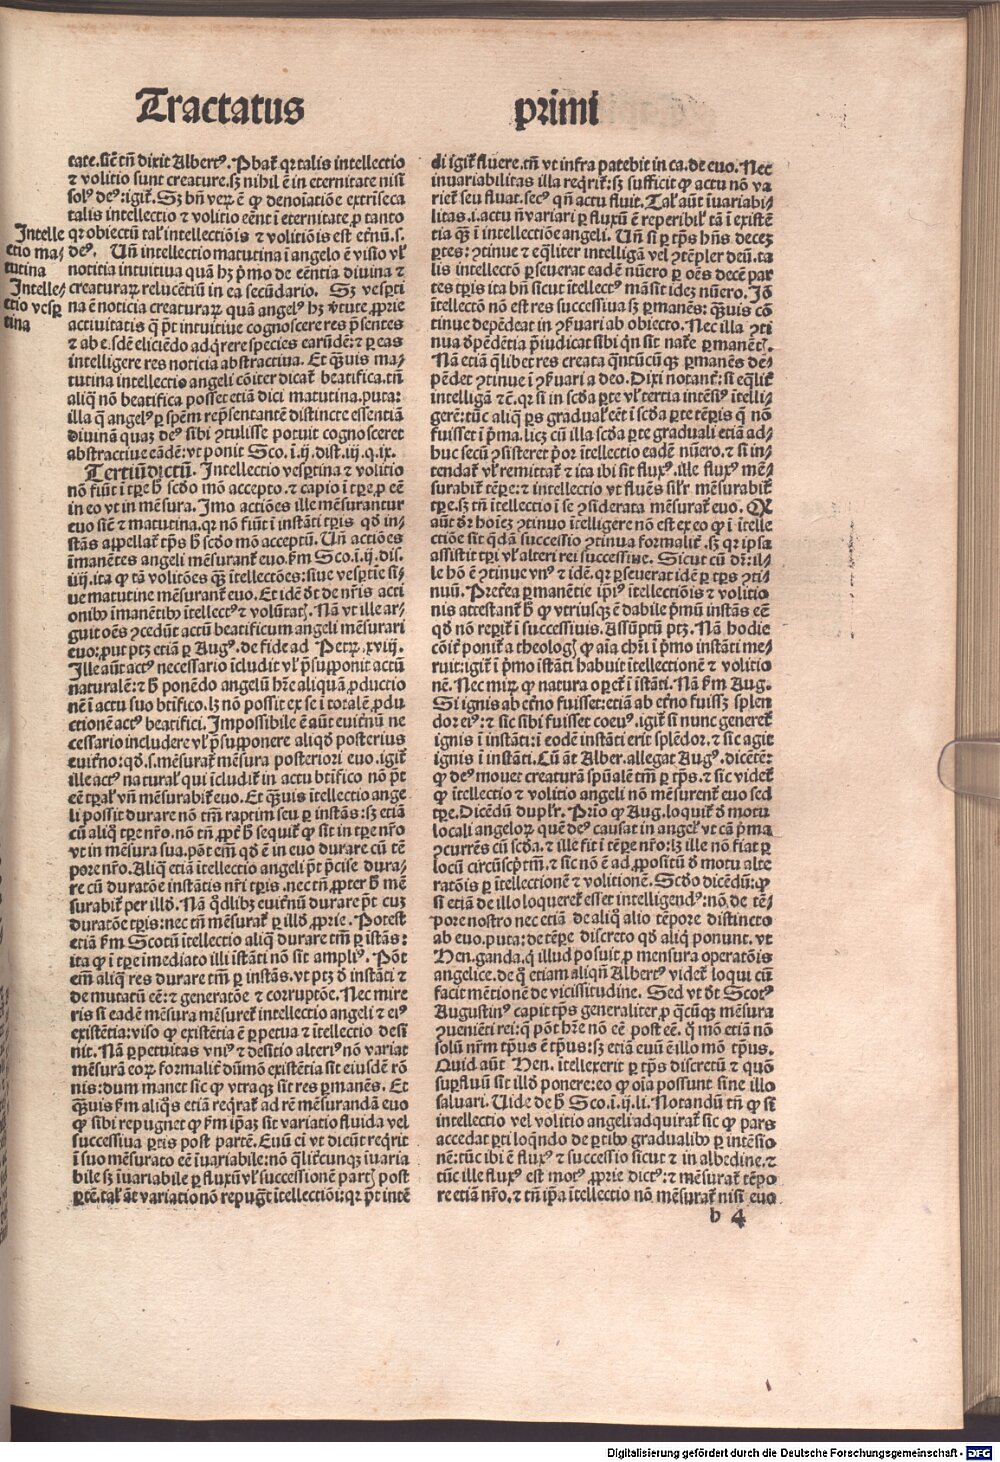 Tractatus primi
tate. sicut tñ dixit Albertꝰ. Pbať qꝛ talis intellectio
⁊ volitio sunt creature. sꝫ nihil ē in eternitate nisi
solꝰ deꝰ: igiť. Sꝫ bñ veꝝ ē ꝙ denoiatiōe extriseca
talis intellectio ⁊ volitio eēnt ī eternitate ꝓ tanto
qꝛ obiectū taľ intellectiōis ⁊ volitiōis est eťnū. s.
deꝰ. Uñ intellectio matutina ī angelo ē visio vľ
noticia intuitiua quā hꝫ pͥmo de eēntia diuina ⁊
creaturaꝝ relucētiū in ea secūdario. Sꝫ vesꝑti
na ē noticia creaturaꝝ quā angelꝰ hꝫ ꝟtute ꝓprie
actiuitatis
intelligere res noticia abstractiua. Et qͣꝫuis ma⸗
tutina intellectio angeli cōiter dicať beatifica. tñ
aliqͣ nō beatifica posset etiā dici matutina. puta:
illa qͣ angelꝰ ꝑ spēm repn̄sentantē distincte essentiā
diuinā quaꝫ deꝰ sibi ꝯtulisse potuit cognosceret
abstractiue eādē: vt ponit Sco. ī. ij. dist. iij. q. ix.
Tertiū dictū. Intellectio vesꝑtina ⁊ volitio
in eo vt in mēsura. Imo actiōes ille mēsurantur
euo sicut ⁊ matutina. qꝛ nō fiūt ī instāti tꝑis qd̄ in⸗
stās appellať tp̄s h̄ scd̄o mō acceptū. Uñ actiōes
īmanētes angeli mēsuranť euo. km̄ Sco. ī. ij. dis.
iij. ita ꝙ tā volitōes qͣꝫ ītellectōes: siue vesꝑtie si⸗
ue matutine mēsuranť euo.
guit oēs ꝯcedūt actū beatificum angeli mēsurari
euo: ꝓut ptꝫ etiā ꝑ Augꝰ. de fide ad Petrū. xviij.
Ille aūt actꝰ necessario īcludit vľ pͥsupponit actū
naturalē: ⁊ h̄ ponēdo angelū hr̄e aliquā ꝓductio
nē ī actu suo btīfico. lꝫ nō possit ex se ī totalē ꝓdu
ctionē actꝰ beatifici. Impossibile ē aūt euiťnū ne
cessario includere vľ pͥsupponere aliqd̄ posterius
euiťno: qd̄. s. mēsuraľ mēsura posteriori euo. igiť
ille actꝰ naturaľ qui īcludiť in actu btīfico nō pōt
eē tꝑaľ vñ mēsurabiť euo. Et qͣꝫuis ītellectio ange
li possit durare nō tm̄ raptim seu ꝑ instās: sꝫ etiā
vt in mēsura sua. pōt em̄ qd̄ ē in euo durare cū tē
pore nr̄o. Aliqͣ etiā ītellectio angeli pōt pͥcise dura⸗
re cū duratōe instātis nr̄i tꝑis. nec tñ ꝓpter h̄ mē
surabiť per illd̄. Nā qd̄libꝫ euiťnū durare pōt cuꝫ
duratōe tꝑis: nec tñ mēsurať ꝑ illd̄ ꝓprie. Potest
etiā km̄ Scotū ītellectio aliqͣ durare tm̄ ꝑ īstās:
ita ꝙ ī tꝑe īmediato illi īstāti nō sit ampliꝰ. Pōt
em̄ aliqͣ res durare tm̄ ꝑ instās. vt ptꝫ d̄ instāti ⁊
de mutatū eē: ⁊ generatōe ⁊ corruptōe. Nec mire
ris si eadē mēsura mēsureť intellectio angeli ⁊ eiꝰ
existētia: viso ꝙ existētia ē ꝑpetua ⁊ ītellectio desī
nit. Nā ꝑpetuitas vniꝰ ⁊ desitio alteriꝰ nō variat
mēsurā eoꝝ formaliť dūmō existētia sit eiusdē rō
nis: dum manet sic ꝙ vtraqꝫ sit res ꝑmanēs. Et
qͣꝫuis km̄ aliqͦs etiā reqͥrať ad rē mēsurandā euo
ꝙ sibi repugnet ꝙ km̄ ip̄aꝫ sit variatio fluida vel
successiua ꝑtis post partē. Euū ei vt dicūt reqͥrit
ī suo mēsurato eē īuariabile: nō qͣlitercunqꝫ īuaria
bile sꝫ īuariabile ꝑ fluxū vľ successionē partiū post
ꝑtē. taľ aūt variatio nō repugͣt ītellectiōi: qꝛ pōt intē
Intelle
ctio ma⸗
tutina
Intelle⸗
ctio vesꝑ
tina
di igiť fluere. tñ vt infra patebit in ca. de euo. Nec
inuariabilitas illa reqͥriť: sꝫ sufficit ꝙ actu nō va
rieť seu fluat. secꝰ qñ actu fluit. Taľ aūt īuariabi⸗
litas. i. actu nō variari ꝑ fluxū ē reperibiľ tā ī existē
tia qͣꝫ ī intellectiōe angeli. Uñ si ꝑ tp̄s hn̄s deceꝫ
ꝑtes: ꝯtinue ⁊ eqͣliter intelligā vel ꝯtēpler deū. ta
lis intellectō ꝑseuerat eadē nūero ꝑ oēs decē par
tes tꝑis ita bñ sicut ītellectꝰ māsit ideꝫ nūero. Iō
ītellectō nō est res successiua sꝫ ꝑmanēs: qͣꝫuis cō
tinue depēdeat in ꝯẜuari ab obiecto. Nec illa ꝯti
nua dependētia pͥiudicat sibi qͥn sit nať ꝑmanētis.
Nā etiā qͣlibet res creata qͣntūcūqꝫ ꝑmanēs de⸗
pēdet ꝯtinue ī ꝯẜuari a deo. Dixi notanť: si eqͣliť
intelligā ⁊c. qꝛ si in scd̄a ꝑte vľ tertia intēsiꝰ ītelli⸗
gerē: tūc aliqͣ ꝑs gradualꝰ eēt ī scd̄a ꝑte tēꝑis qͣ nō
fuisset ī pͥma. licꝫ cū illa scd̄a ꝑte graduali etiā ad⸗
huc secū ꝯsisteret pͥor ītellectio eadē nūero. ⁊ si in⸗
tendať vľ remittať ⁊ ita ibi sit fluxꝰ. ille fluxꝰ mē⸗
surabiť tēꝑe: ⁊ intellectio vt fluēs siľr mēsurabiť
tꝑe. sꝫ tñ intellectio ī se ꝯsiderata mēsurať euo.
aūt dr̄ hoīeꝫ ꝯtinuo ītelligere nō est ex eo ꝙ ī ītelle
ctiōe sit qd̄ā successio ꝯtinua formaliť. sꝫ qꝛ ipsa
assistit tꝑi vľ alteri rei successiue. Sicut cū dr̄: il⸗
le hō ē ꝯtinue vnꝰ ⁊ idē. qꝛ ꝑseuerat idē ꝑ tꝑs ꝯti⸗
nuū. Preťea ꝑmanētie ip̄iꝰ ītellectiōis ⁊ volitio
nis attestanť h̄ ꝙ vtriusqꝫ ē dabile pͥmū instās eē
qd̄ nō reperiť ī successiuis. Assūptū ptꝫ. Nā hodie
cōiť poniť a theologis ꝙ aīa chr̄i ī pͥmo instāti me⸗
ruit: igiť ī pͥmo īstāti habuit ītellectionē ⁊ volitio
nē. Nec miꝝ ꝙ natura opereť ī īstāti. Nā km̄ Aug.
Si ignis ab eťno fuisset: etiā ab eťno fuissꝫ splen
dor eiꝰ: ⁊ sic sibi fuisset coeuꝰ. igiť si nunc genereť
ignis ī instāti: ī eodē instāti erit splēdor. ⁊ sic agit
ignis ī instāti. Cū aūt Alber. allegat Augꝰ. dicētē:
ꝙ deꝰ mouet creaturā spūalē tm̄ ꝑ tp̄s. ⁊ sic videť
ꝙ ītellectio ⁊ volitio angeli nō mēsurenť euo sed
tꝑe. Dicēdū dupľr. Pͥo ꝙ Aug. loquiť d̄ motu
locali angeloꝝ quē deꝰ causat in angelis vt cā pͥma
ꝯcurrēs cū scd̄a. ⁊ ille fit ī tēꝑe nr̄o: lꝫ ille nō fiat ꝑ
locū circūscͥptm̄. ⁊ sic nō ē ad ꝓpositū d̄ motu alte
ratōis ꝑ ītellectionē ⁊ volitionē. Scd̄o dicēdū: ꝙ
si etiā de illo loquereť esset intelligendꝰ: nō de tē⸗
pore nostro nec etiā de aliqͦ alio tēpore distincto
ab euo. puta: de tēꝑe discreto qd̄ aliqͥ ponunt. vt
Hen. ganda. qͥ illud posuit ꝓ mensura operatōis
angelice. de qͦ etiam aliqñ Albertꝰ videť loqui cū
facit mētionē de vicissitudine. Sed vt dt̄ Scotꝰ
Augustinꝰ capit tp̄s generaliter ꝓ qͣcūqꝫ mēsura
ꝯueniēti rei: qͣ pōt hr̄e nō eē post eē. qͦ mō etiā nō
solū nr̄m tp̄us ē tp̄us: sꝫ etiā euū ē illo mō tp̄us.
Quid aūt Hen. ītellexerit ꝑ tp̄s discretū ⁊ quō
suꝑfluū sit illd̄ ponere: eo ꝙ oīa possunt sine illo
saluari. Uide de h̄ Sco. ī. ij. li. Notandū tñ ꝙ si
intellectio vel volitio angeli adquiraľ sic ꝙ pars
accedat ꝑti loqͣndo de ꝑtibꝰ gradualibꝰ ꝑ intēsio
nē: tūc ibi ē fluxꝰ ⁊ successio sicut ⁊ in albedine. ⁊
tūc ille fluxꝰ est motꝰ ꝓprie dictꝰ: ⁊ mēsurať tēpo
re etiā nr̄o. ⁊ tñ ip̄a ītellectio nō mēsurať nisi euo
b 4
Digitalisierung gefördert durch die Deutsche Forschungsgemeinschaft - DFG